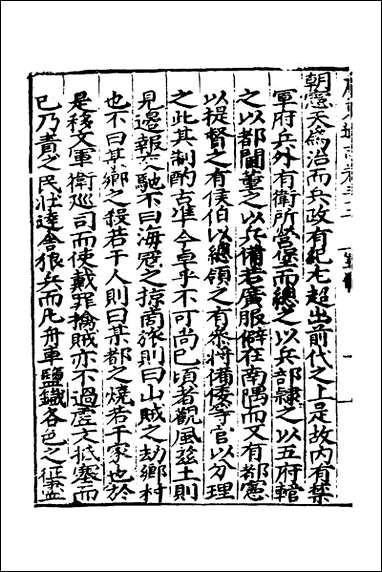 朝憲天為治而兵政有紀尤超出前代之上是故内有禁
軍府兵外有衛所營堡而總之以兵部隷之以五府轄
之以都閫董之以兵備若廣服僻在南隅而又有都憲
以提督之有侯伯以總領之有叅将備倭等官以分理
之此其制酌古凖今卓乎不可尚已頃者觀風兹土則
見邊報交馳不曰海冦之掠商旅則曰山賊之劫鄉村
也不曰某鄉之殺若干人則曰某都之燒若干家也於
是移文軍衛巡司而使戴罪擒賊亦不過虚文抵塞而
已乃責之民壮達舎狼兵而凡舟車鹽鐵各色之征